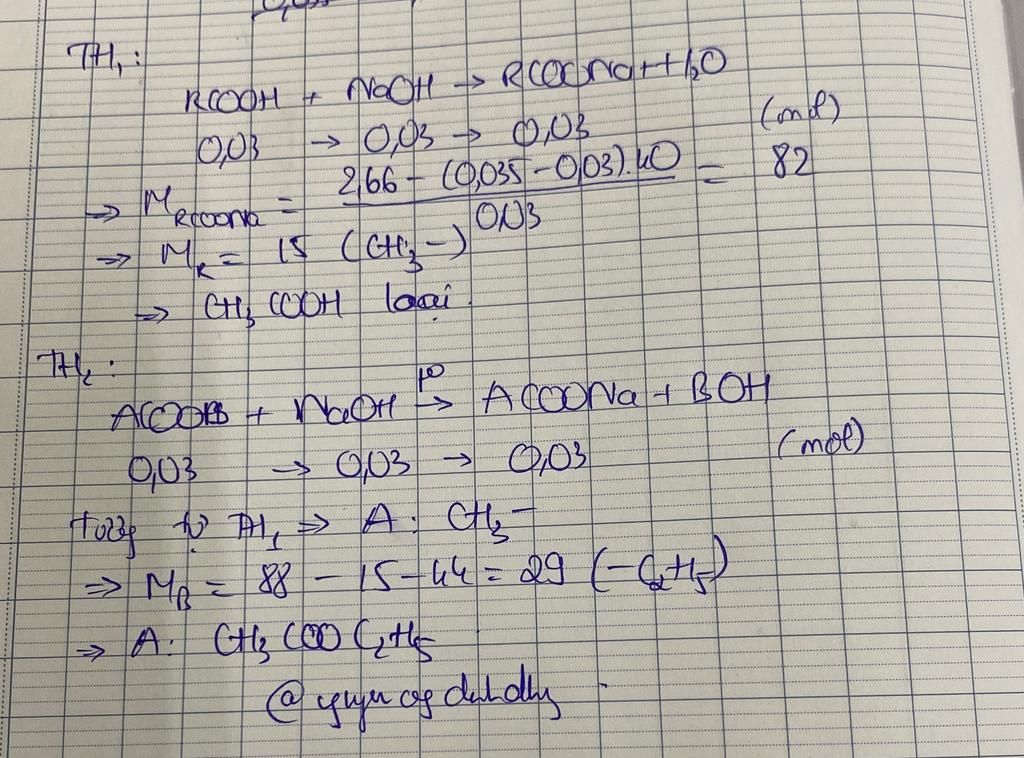 TH₁:
RCOOH + NaOH → RCOONa + H₂O
0,03 → 0,03 → 0,03 (mol)
⇒ M RCOONa = 2,66 - (0,035 - 0,03).40 / 0,03 = 82
⇒ M_R = 15 (CH₃-)
⇒ CH₃COOH loại
TH₂:
ACOOB + NaOH t° → ACOONa + BOH
0,03 → 0,03 → 0,03 (mol)
tự TH₁ ⇒ A: CH₃-
⇒ M_B = 88 - 15 - 44 = 29 (-C₂H₅)
⇒ A: CH₃COOC₂H₅